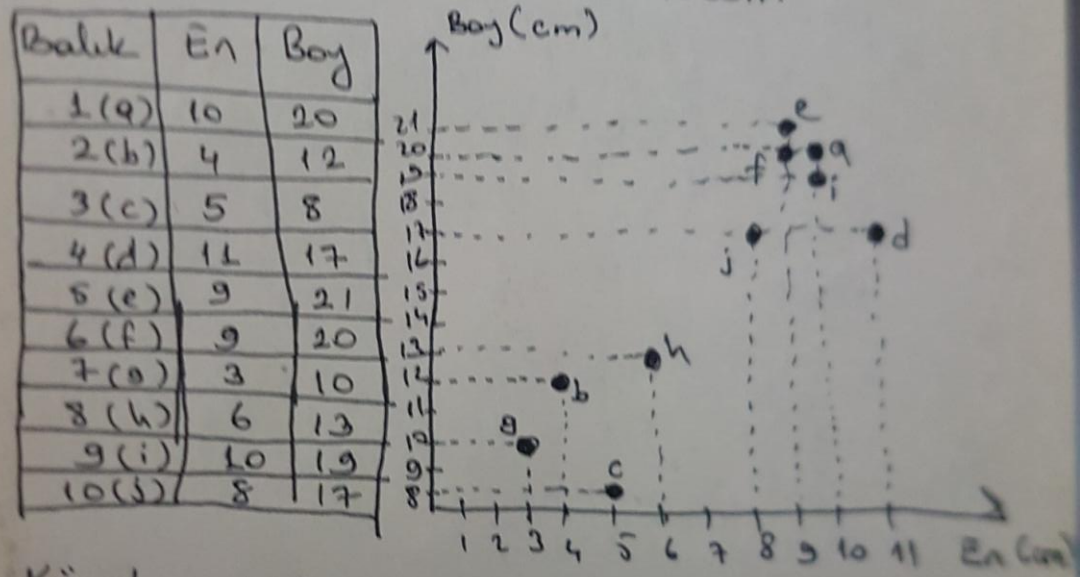 Balık En Boy
1(a) 10 20
2(b) 4 12
3(c) 5 8
4(d) 11 17
5(e) 9 21
6(f) 9 20
7(g) 3 10
8(h) 6 13
9(i) 10 19
10(j) 8 17
Boy(cm)
21
20
19
18
17
16
15
14
13
12
11
10
9
8
e
f a
i
j d
h
b
g
c
1 2 3 4 5 6 7 8 9 10 11 En (cm)